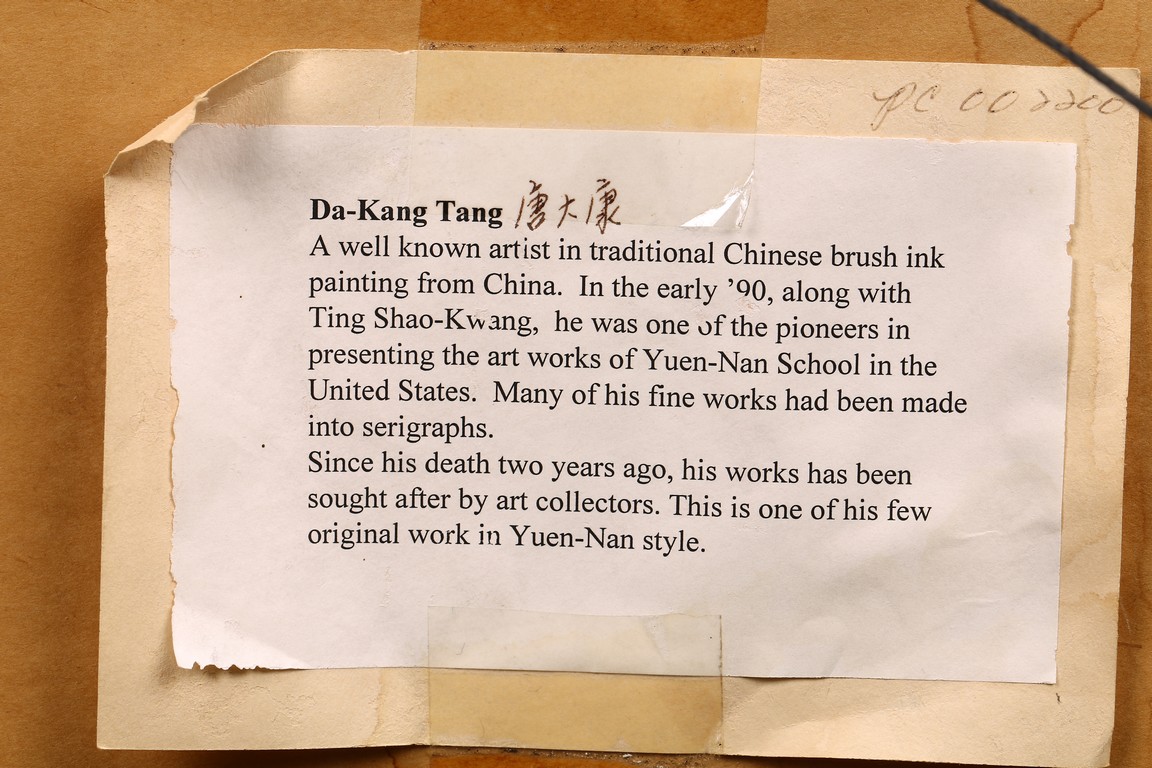 PC 002200
Da-Kang Tang 唐大康
A well known artist in traditional Chinese brush ink
painting from China. In the early ’90, along with
Ting Shao-Kwang, he was one of the pioneers in
presenting the art works of Yuen-Nan School in the
United States. Many of his fine works had been made
into serigraphs.
Since his death two years ago, his works has been
sought after by art collectors. This is one of his few
original work in Yuen-Nan style.